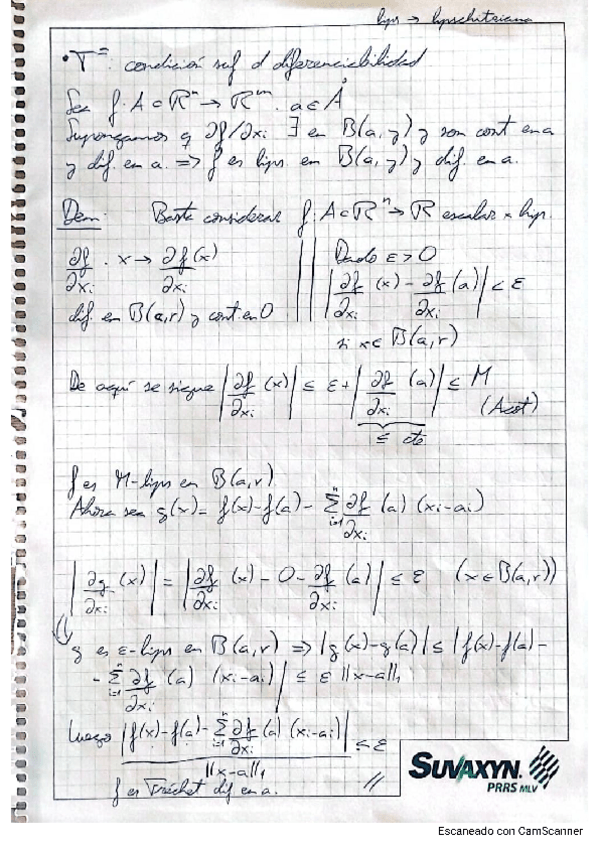 lips → lipschitziana
• Tª: condición suf d diferenciabilidad
Sea f: A ⊂ ℝⁿ → ℝᵐ, a ∈ Å
Supongamos q ∂f/∂xᵢ ∃ en B(a, r) y son cont en a
y dif. en a. ⇒ f es lips. en B(a, r) y dif. en a.
Dem: Basta considerar f: A ⊂ ℝⁿ → ℝ escalar x hip.
∂f/∂xᵢ : x → ∂f/∂xᵢ (x)
dif. en B(a,r) y cont en 0
Dado ε > 0
|∂f/∂xᵢ (x) - ∂f/∂xᵢ (a)| < ε
si x ∈ B(a,r)
De aquí se sigue |∂f/∂xᵢ (x)| ≤ ε + |∂f/∂xᵢ (a)| ≤ M
≤ cte
(Acot)
f es M-lips en B(a,r)
Ahora sea g(x) = f(x) - f(a) - Σⁿᵢ₌₁ ∂f/∂xᵢ (a) (xᵢ - aᵢ)
|∂g/∂xᵢ (x)| = |∂f/∂xᵢ (x) - 0 - ∂f/∂xᵢ (a)| ≤ ε (x ∈ B(a,r))
⇓ g es ε-lips en B(a,r) ⇒ |g(x) - g(a)| ≤ |f(x) - f(a) -
- Σⁿᵢ₌₁ ∂f/∂xᵢ (a) (xᵢ - aᵢ)| ≤ ε ||x - a||₁
Luego |f(x) - f(a) - Σⁿᵢ₌₁ ∂f/∂xᵢ (a) (xᵢ - aᵢ)| / ||x - a||₁ ≤ ε
f es Fréchet dif en a. //
SUVAXYN.
PRRS MLV
Escaneado con CamScanner